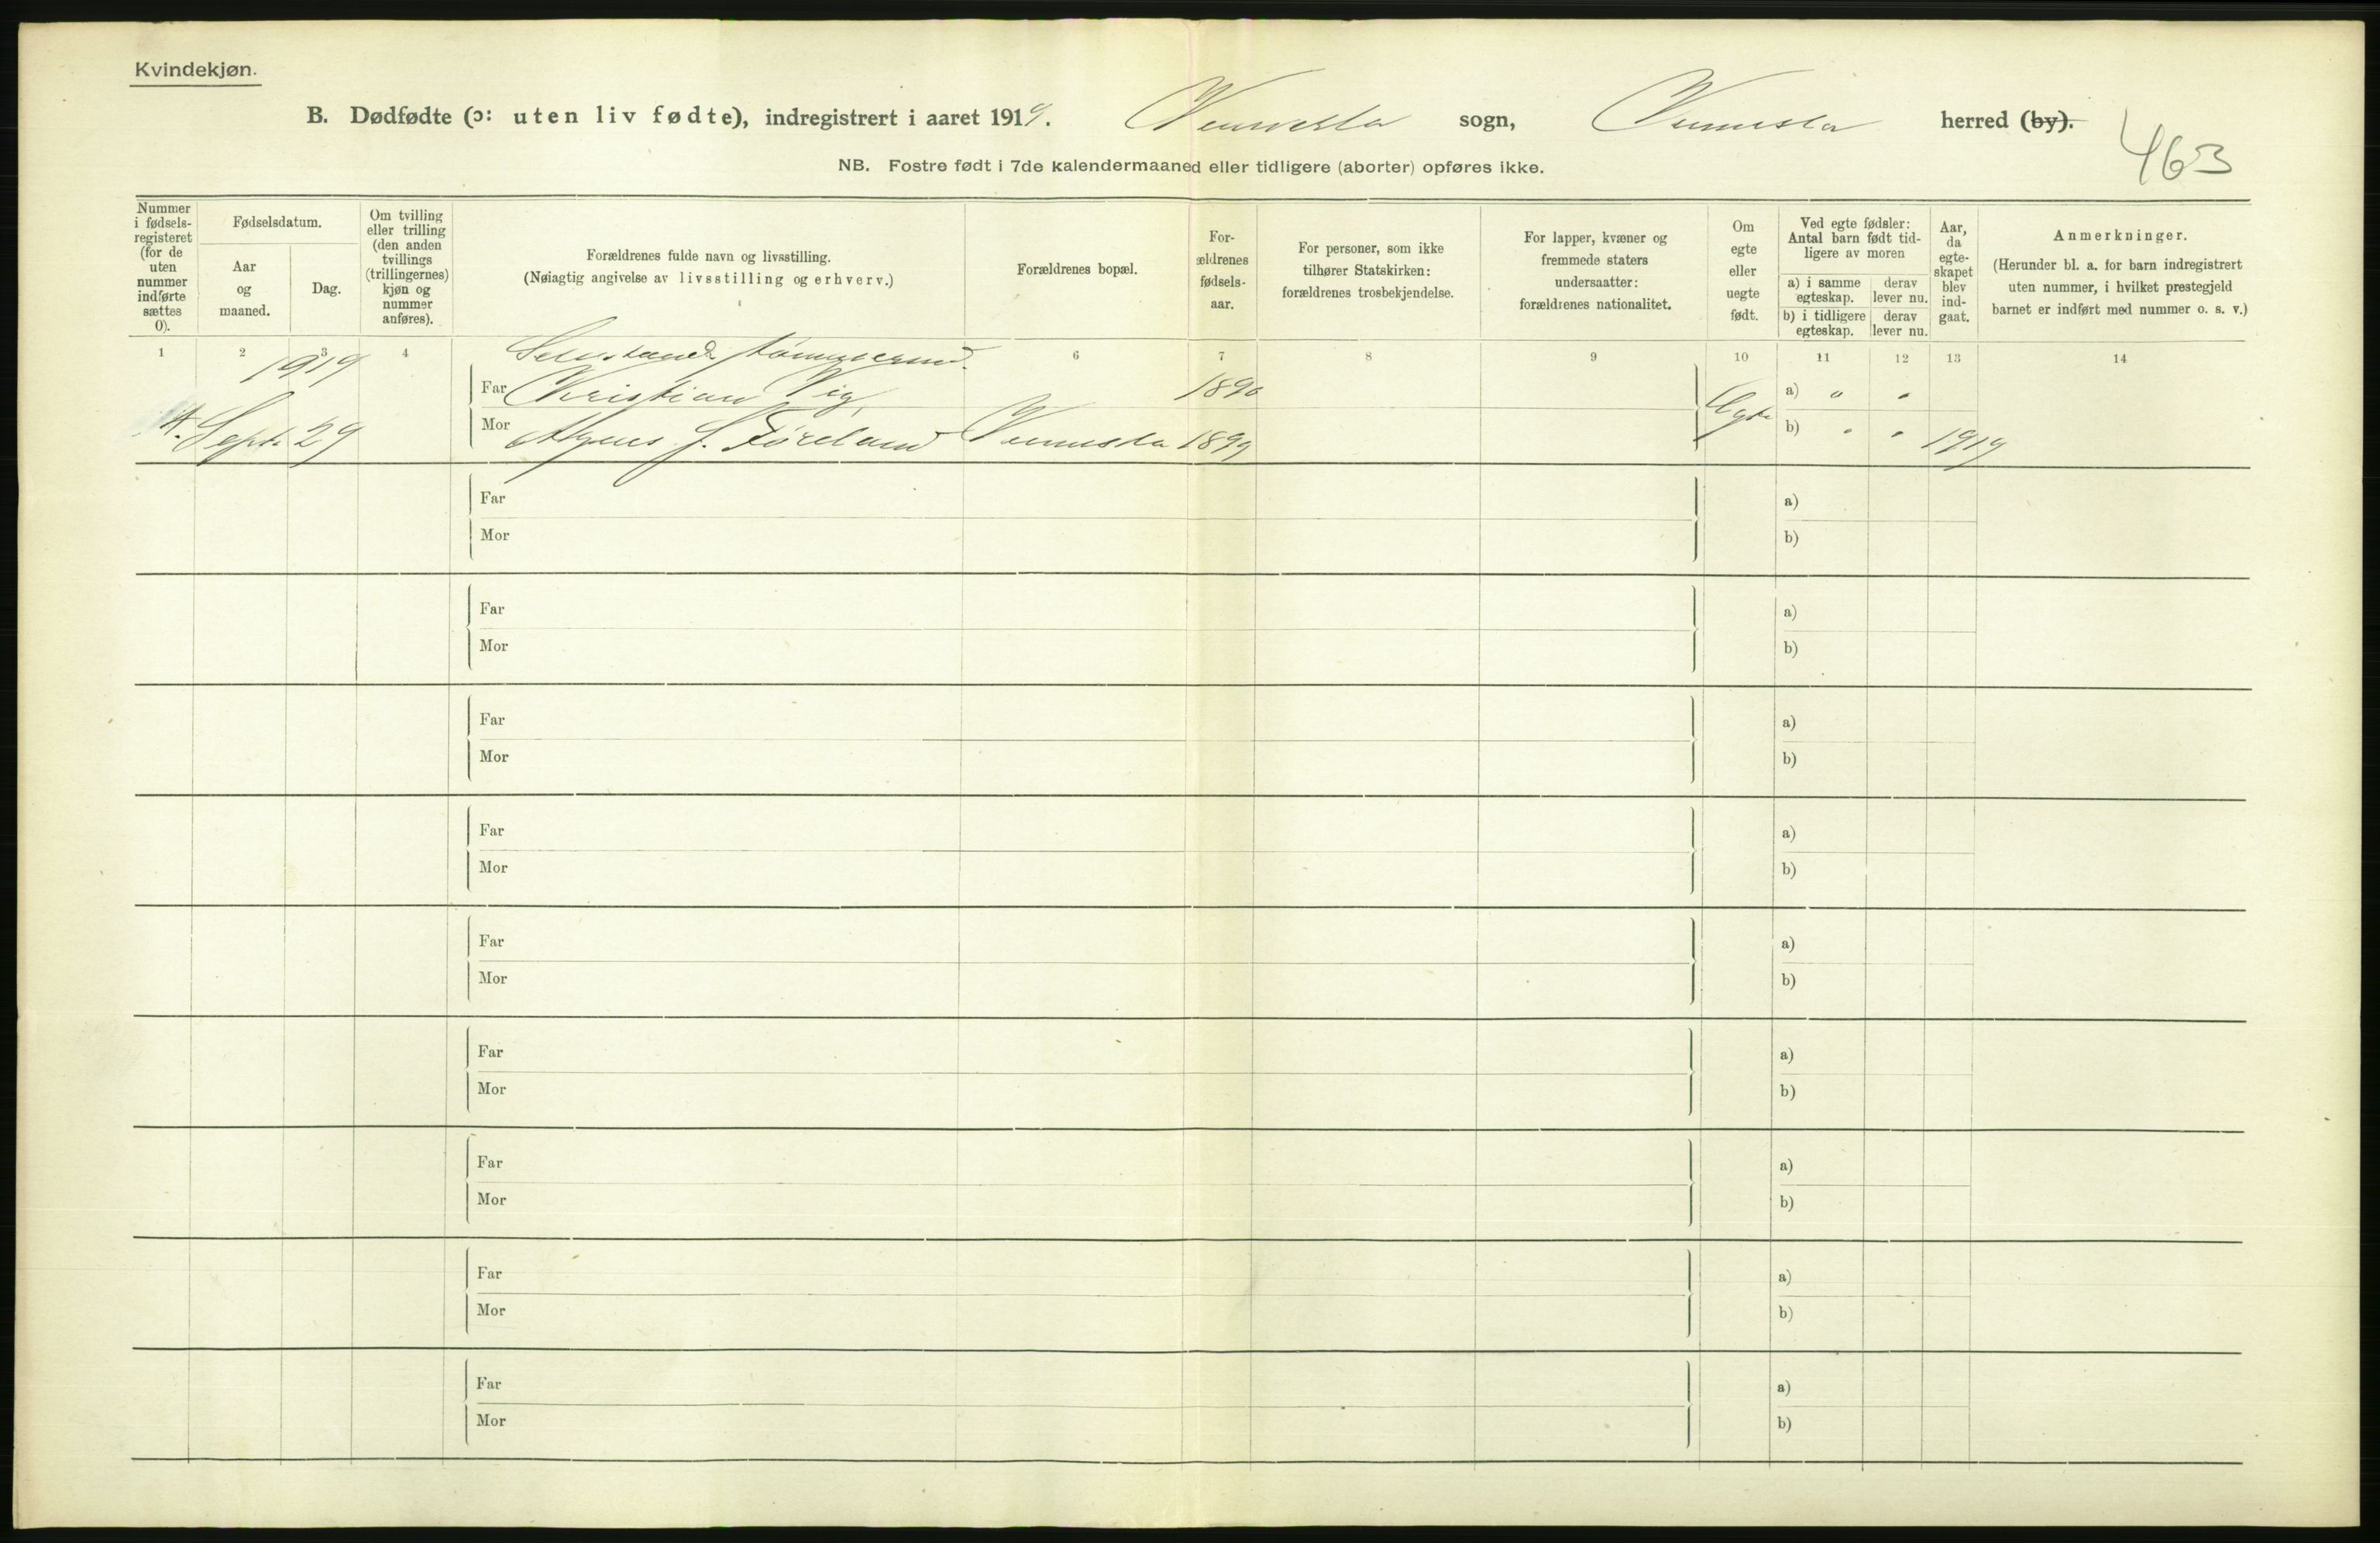 Kvindekjøn.
B. Dødfødte (ɔ: uten liv fødte), indregistrert i aaret 1919. Vennesla sogn, Vennesla herred (by).
463
NB. Fostre født i 7de kalendermaaned eller tidligere (aborter) opføres ikke.
Nummer i fødsels-registeret (for de uten nummer indførte sættes 0).
Fødselsdatum.
Aar og maaned.
Dag.
Om tvilling eller trilling (den anden tvillings (trillingernes) kjøn og nummer anføres).
Forældrenes fulde navn og livsstilling.
(Nøiagtig angivelse av livsstilling og erhverv.)
Forældrenes bopæl.
For-ældrenes fødsels-aar.
For personer, som ikke tilhører Statskirken: forældrenes trosbekjendelse.
For lapper, kvæner og fremmede staters undersaatter: forældrenes nationalitet.
Om egte eller uegte født.
Ved egte fødsler: Antal barn født tid-ligere av moren
a) i samme egteskap.
derav lever nu.
b) i tidligere egteskap.
derav lever nu.
Aar, da egte-skapet blev ind-gaat.
Anmerkninger.
(Herunder bl. a. for barn indregistrert uten nummer, i hvilket prestegjeld barnet er indført med nummer o. s. v.)
1 2 3 4 6 7 8 9 10 11 12 13 14
1919 Selvstænd. tømmermd.
Far Kristian Vig, 1890 a) " "
Sept. 29 Mor Agnes J. Føreland Vennesla 1899 Egte b) " " 1919
Far a)
Mor b)
Far a)
Mor b)
Far a)
Mor b)
Far a)
Mor b)
Far a)
Mor b)
Far a)
Mor b)
Far a)
Mor b)
Far a)
Mor b)
Far a)
Mor b)